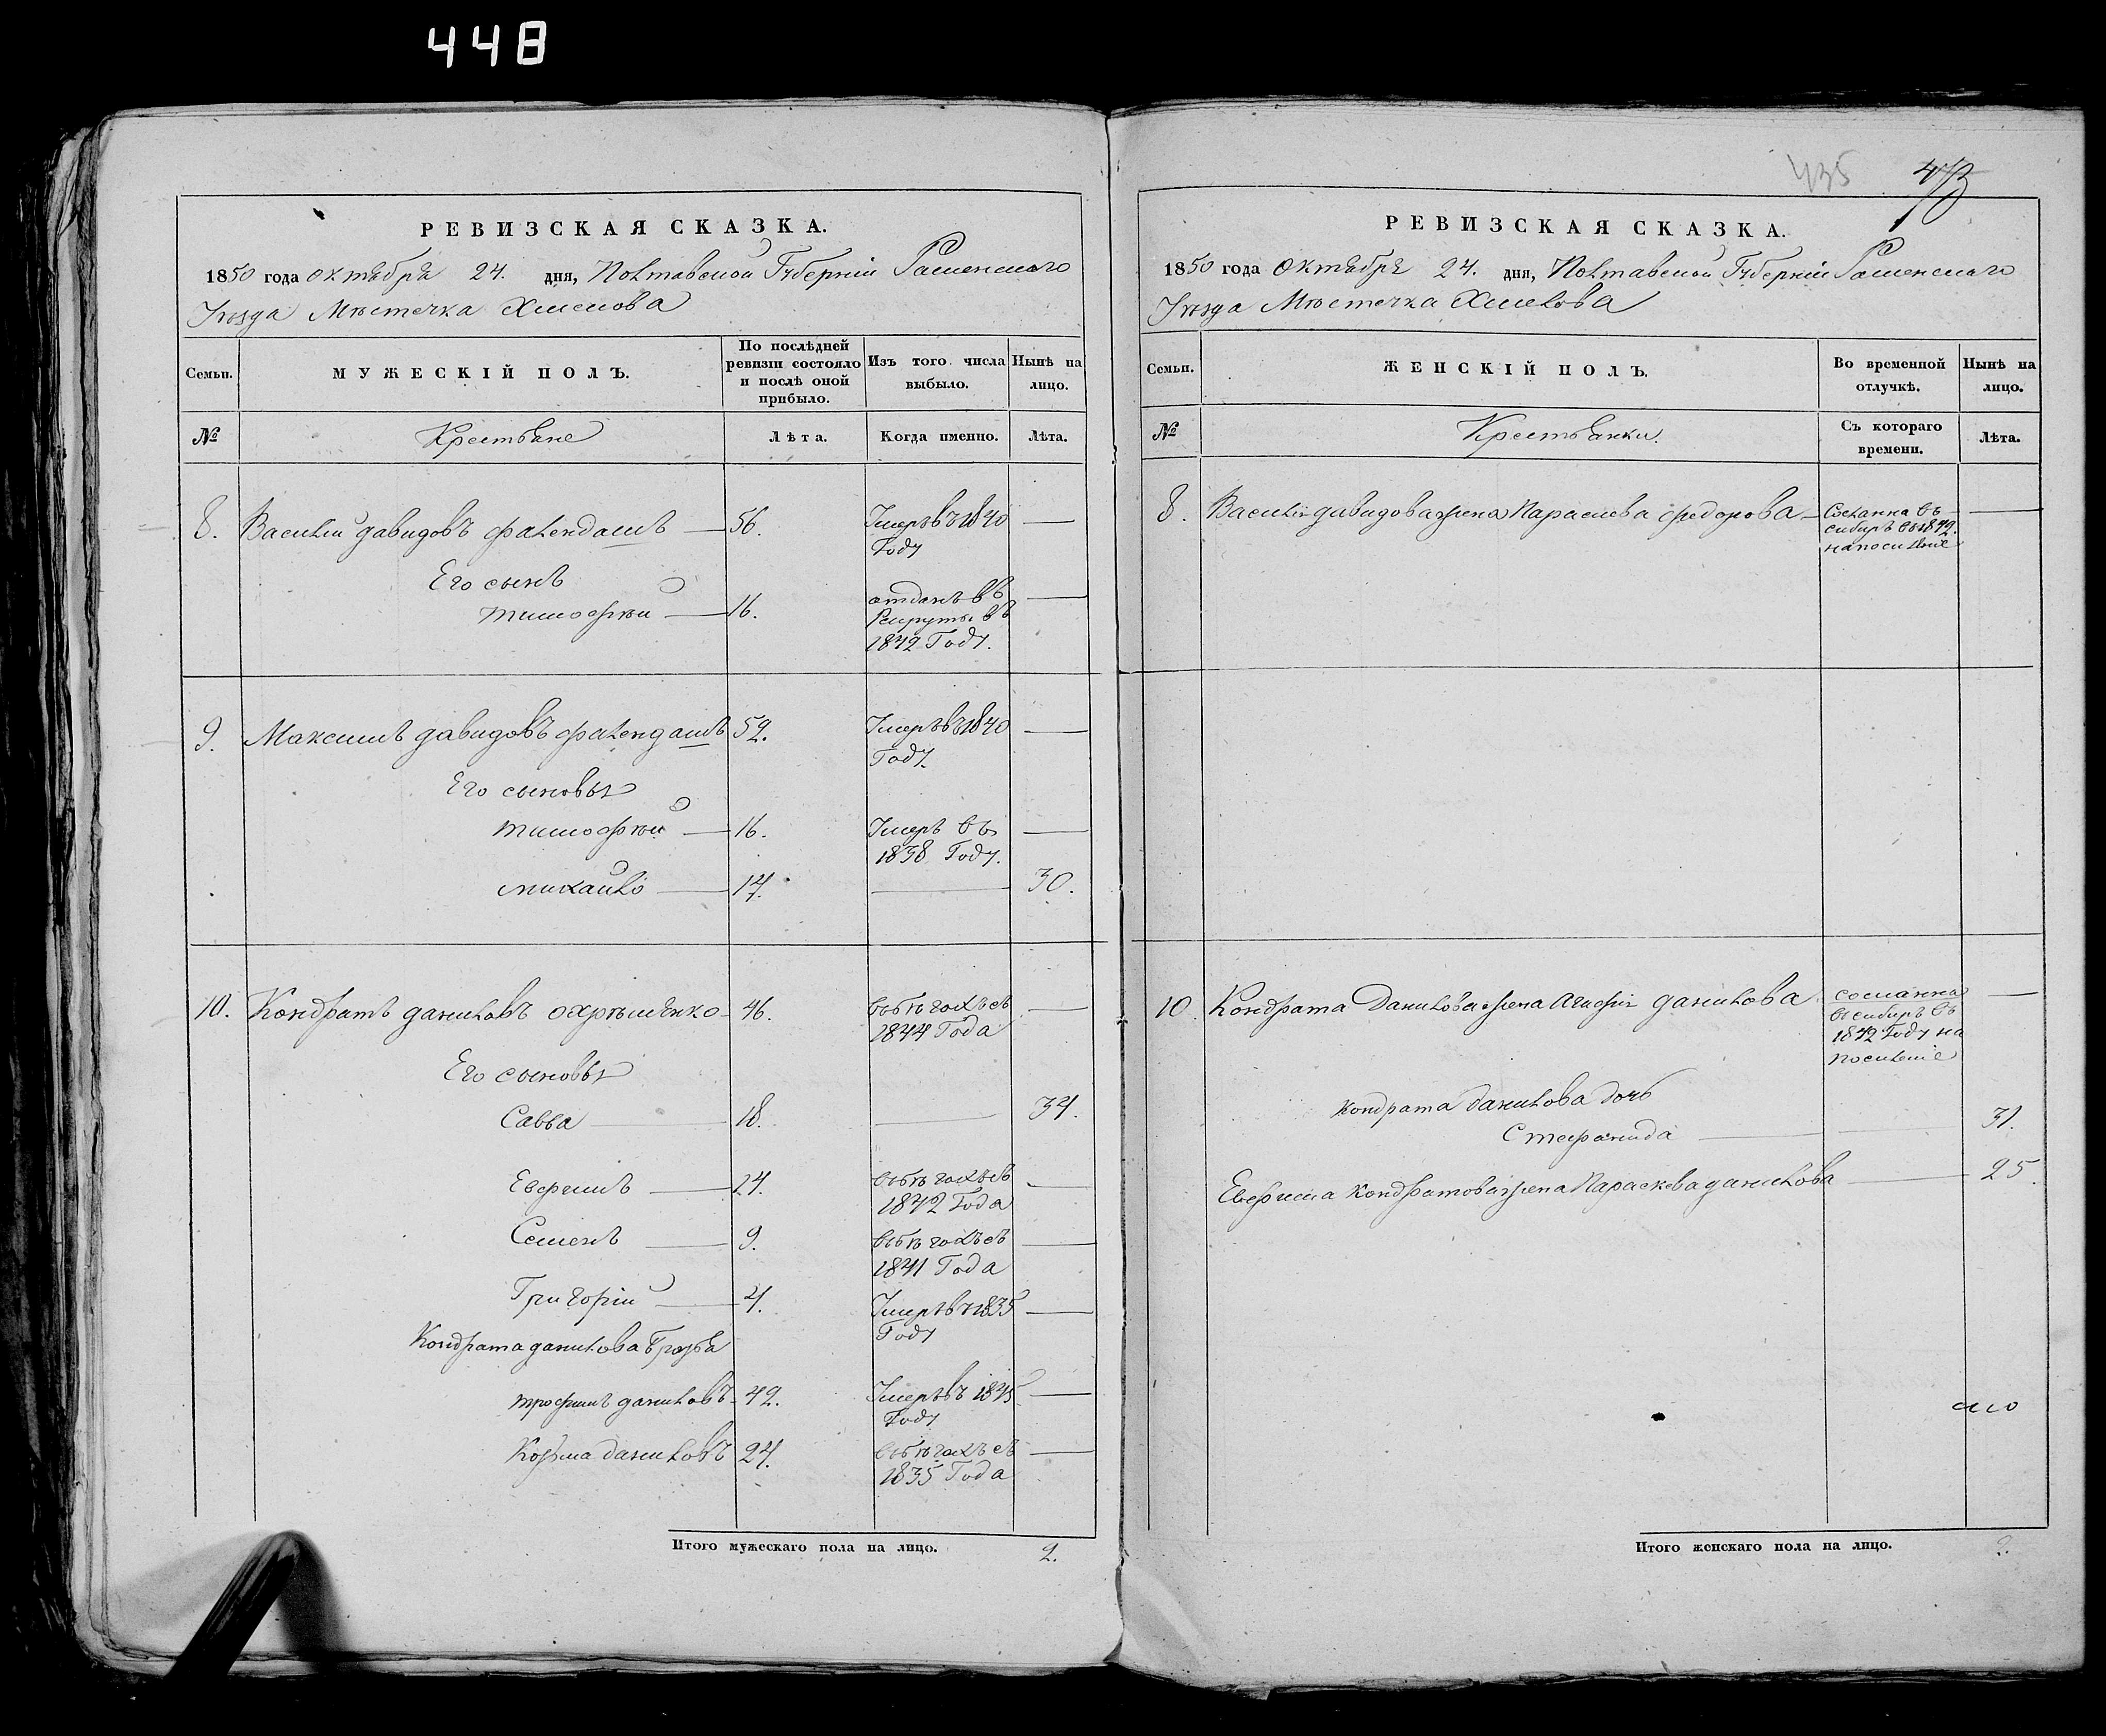 448
РЕВИЗСКАЯ СКАЗКА.
1850 года октября 24. дня, Полтавской Губерніи Роменского
Уезда Местечка Хмелова
Семьи.
МУЖЕСКІЙ ПОЛЪ.
По послѣдней ревизіи состояло и послѣ оной прибыло.
Изъ того числа выбыло.
Нынѣ на лицо.
№
Крестьяне
Лѣта.
Когда именно.
Лѣта.
8. Василій давидовъ 56. Умеръ въ 1840
Году
Его сынъ
тимофей 16. отданъ въ
Рекруты въ
1842 Году.
9. Максимъ давидовъ 52. Умеръ въ 1840
Году.
Его сыновья
тимофей 16. Умеръ въ
1838 Году.
михайло 14. 30.
10. Кондратъ даниловъ охрѣменко 46. въ бѣгахъ съ
1844 Года
Его сыновья
Савва 18. 34.
Евфимъ 14. въ бѣгахъ съ
1842 Года
Семенъ 9. въ бѣгахъ съ
1841 Года
Григорій 4. Умеръ въ 1835
Году
Кондрата данилова братья
трофимъ даниловъ 42. Умеръ въ 1845
Году
Козьма даниловъ 24. въ бѣгахъ съ
1835 Года
Итого мужескаго пола на лицо. 2.
435
РЕВИЗСКАЯ СКАЗКА.
1850 года октября 24. дня, Полтавской Губерніи Роменского
Уезда Местечка Хмелова
Семьи.
ЖЕНСКІЙ ПОЛЪ.
Во временной отлучкѣ.
Нынѣ на лицо.
№
Крестьянки.
Съ котораго времени.
Лѣта.
8. Василія давидова жена Параскева федорова Сосланна въ
сибирь въ 1842.
на поселеніе
10. Кондрата Данилова жена Агафія данилова сосланна
въ сибирь въ
1842 Году на
поселеніе
Кондрата данилова дочь
Стефанида 31.
Евфима Кондратова жена Параскева данилова 25.
Итого женскаго пола на лицо. 2.